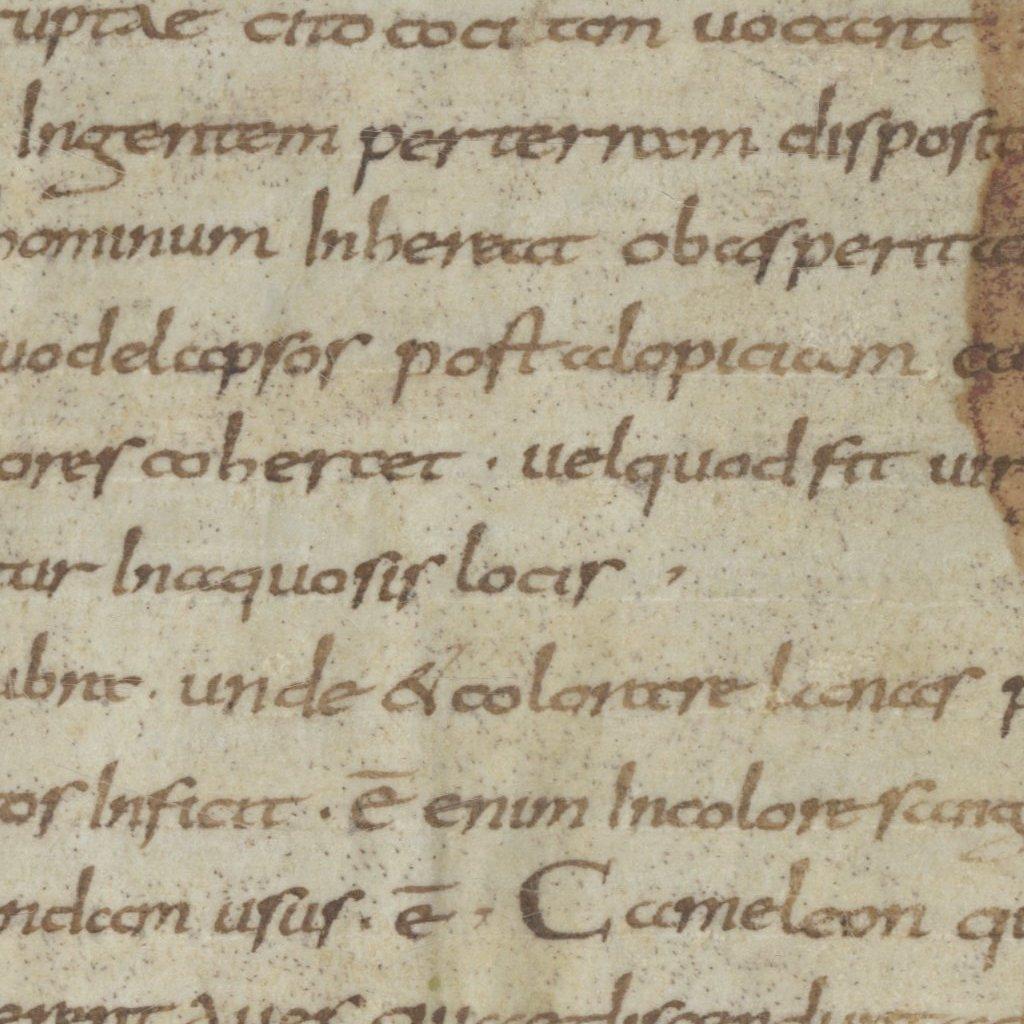 ruptae cito coci tam uocant
Ingentem per terram disposit
hominum Inhereat ob asperita
uod elapsos post alopiciam ca
ores cohercet · uel quod sit uir
tur Inaquosis locis ,
ubra · unde & colorare lanas p
tos Inficit · ē enim Incolore sang
ndam usus · ē , Cameleon qu